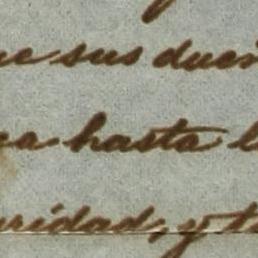 ue sus dueñ
ea hasta l
uridad, y t